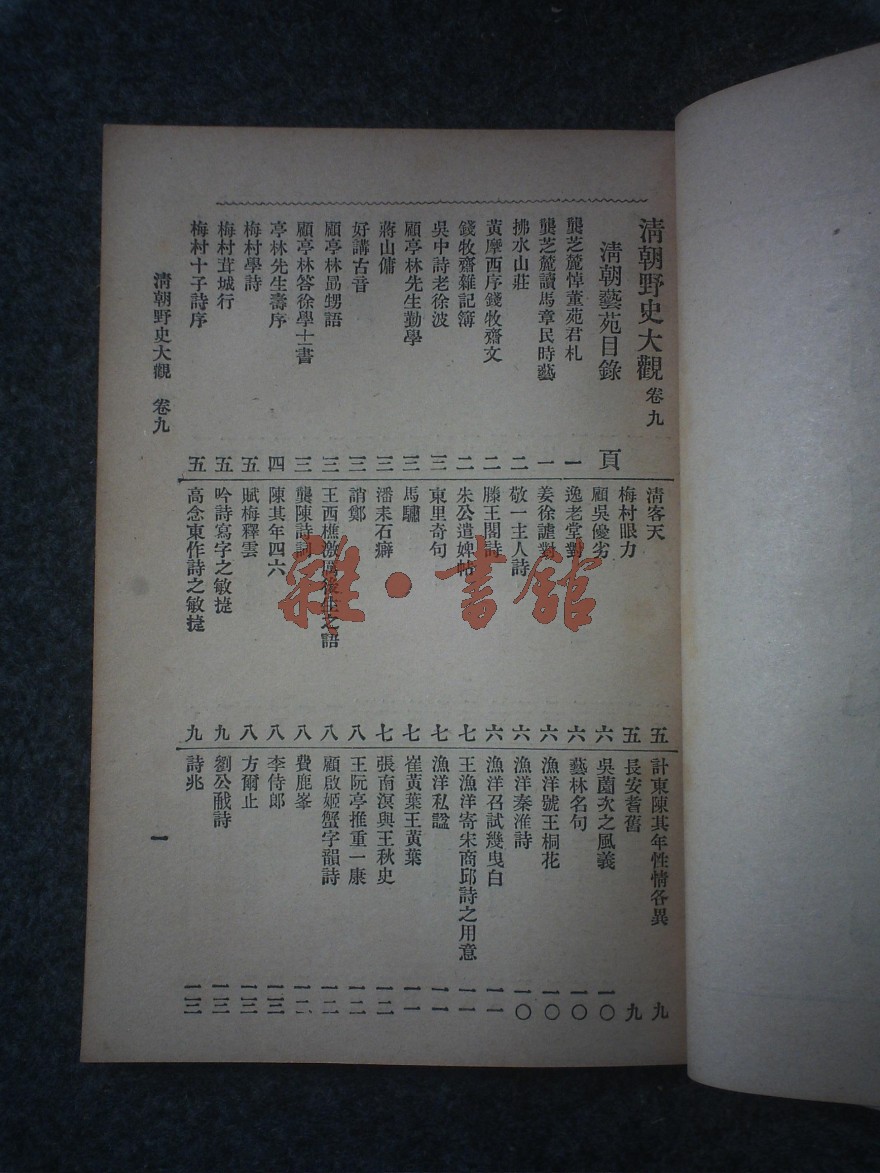 清朝野史大觀 卷九
清朝藝苑目錄 頁
龔芝麓悼董苑君札 一
龔芝麓讀馬章民時藝 一
拂水山莊 二
黃摩西序錢牧齋文 二
錢牧齋雜記簿 二
吳中詩老徐波 三
顧亭林先生勤學 三
蔣山傭 三
好講古音 三
顧亭林勗甥語 三
顧亭林答徐學士書 三
亭林先生壽序 四
梅村學詩 五
梅村葺城行 五
梅村十子詩序 五
清客天 五
梅村眼力 五
顧吳優劣 六
逸老堂對 六
姜徐謔對 六
敬一主人詩 六
滕王閣詩 六
朱公遣婢帖 七
東里奇句 七
馬驌 七
潘耒石癖 七
誚鄭 八
王西樵激厲後生之語 八
龔陳詩詞 八
陳其年四六 八
賦梅釋雲 八
吟詩寫字之敏捷 九
高念東作詩之敏捷 九
計東陳其年性情各異 九
長安耆舊 九
吳薗次之風義 一〇
藝林名句 一〇
漁洋號王桐花 一〇
漁洋秦淮詩 一〇
漁洋召試幾曳白 一一
王漁洋寄宋商邱詩之用意 一一
漁洋私諡 一一
崔黃葉王黃葉 一一
張南溟與王秋史 一二
王阮亭推重一康 一二
顧啟姬蟹字韻詩 一二
費鹿峯 一二
李侍郎 一三
方爾止 一三
劉公㦷詩 一三
詩兆 一三
清朝野史大觀 卷九
一
雜·書舘